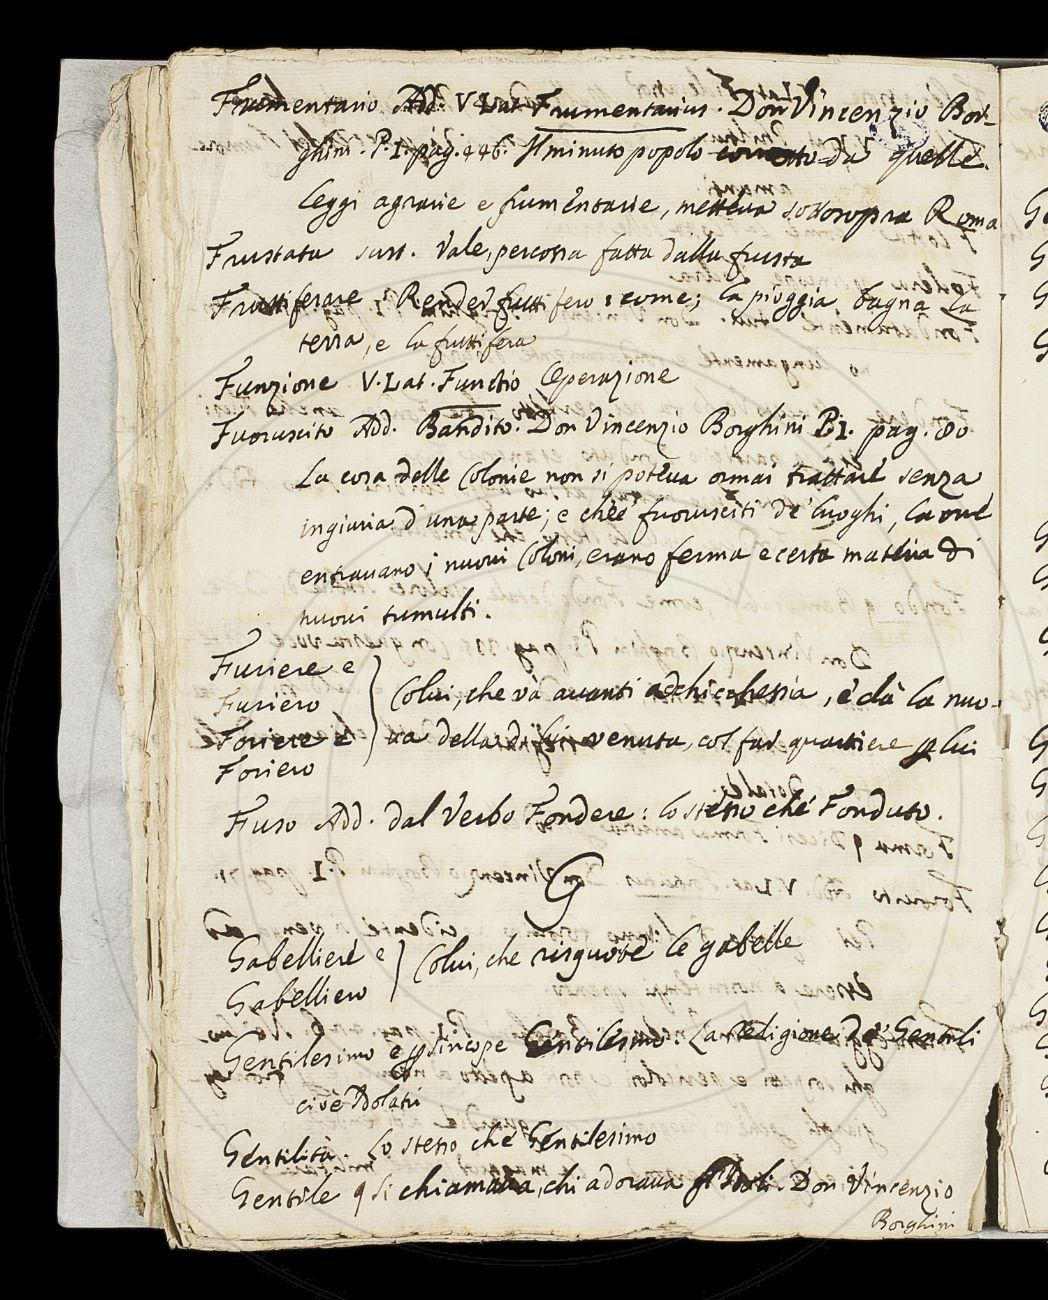 Frumentario Add. V. Lat. Frumentarius. Don Vincenzio Bor-
ghini. P. I. pag. 446. Il minuto popolo da quelle
leggi agrarie e frumentarie, metteva sottosopra Roma
Frustata sust. Vale, percossa fatta dalla frusta
Fruttiferare Render fruttifero: come; la pioggia bagna la
terra, e la fruttifera
Funzione V. Lat. Functio Operazione
Fuoruscito Add. Bandito. Don Vincenzio Borghini P. I. pag. 80
La cosa delle Colonie non si poteva ormai trattare senza
ingiuria d'una parte; e che e' fuorusciti de' luoghi, la ove
entravano i nuovi Coloni, erano ferma e certa materia di
nuovi tumulti.
Furiere e
Furiero
Foriere e
Foriero
Colui, che và avanti a chi chessia, e dà la nuo-
va della di lui venuta, col far quartiere p lui
Fuso Add. dal Verbo Fondere: lo stesso che Fonduto.
G
Ga
Gabelliere e
Gabelliero
Colui, che risquote le gabelle
Gentilesimo e p sincope Gentilesmo. La Religione de' Gentili
cioè Idolatri
Gentilità. Lo stesso che Gentilesimo
Gentile q si chiamava, chi adorava gl'Idoli. Don Vincenzio
Borghini